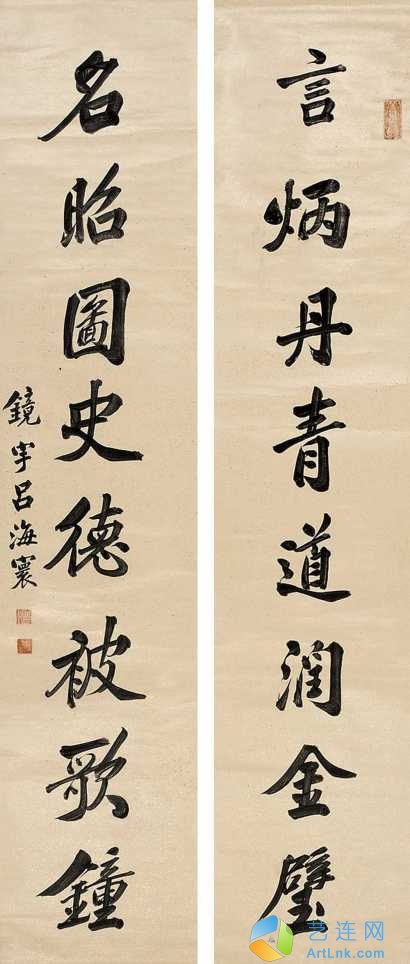 言炳丹青道润金璧
名昭圖史德被歌鐘
鏡宇呂海寰
艺连网
ArtLnk.com